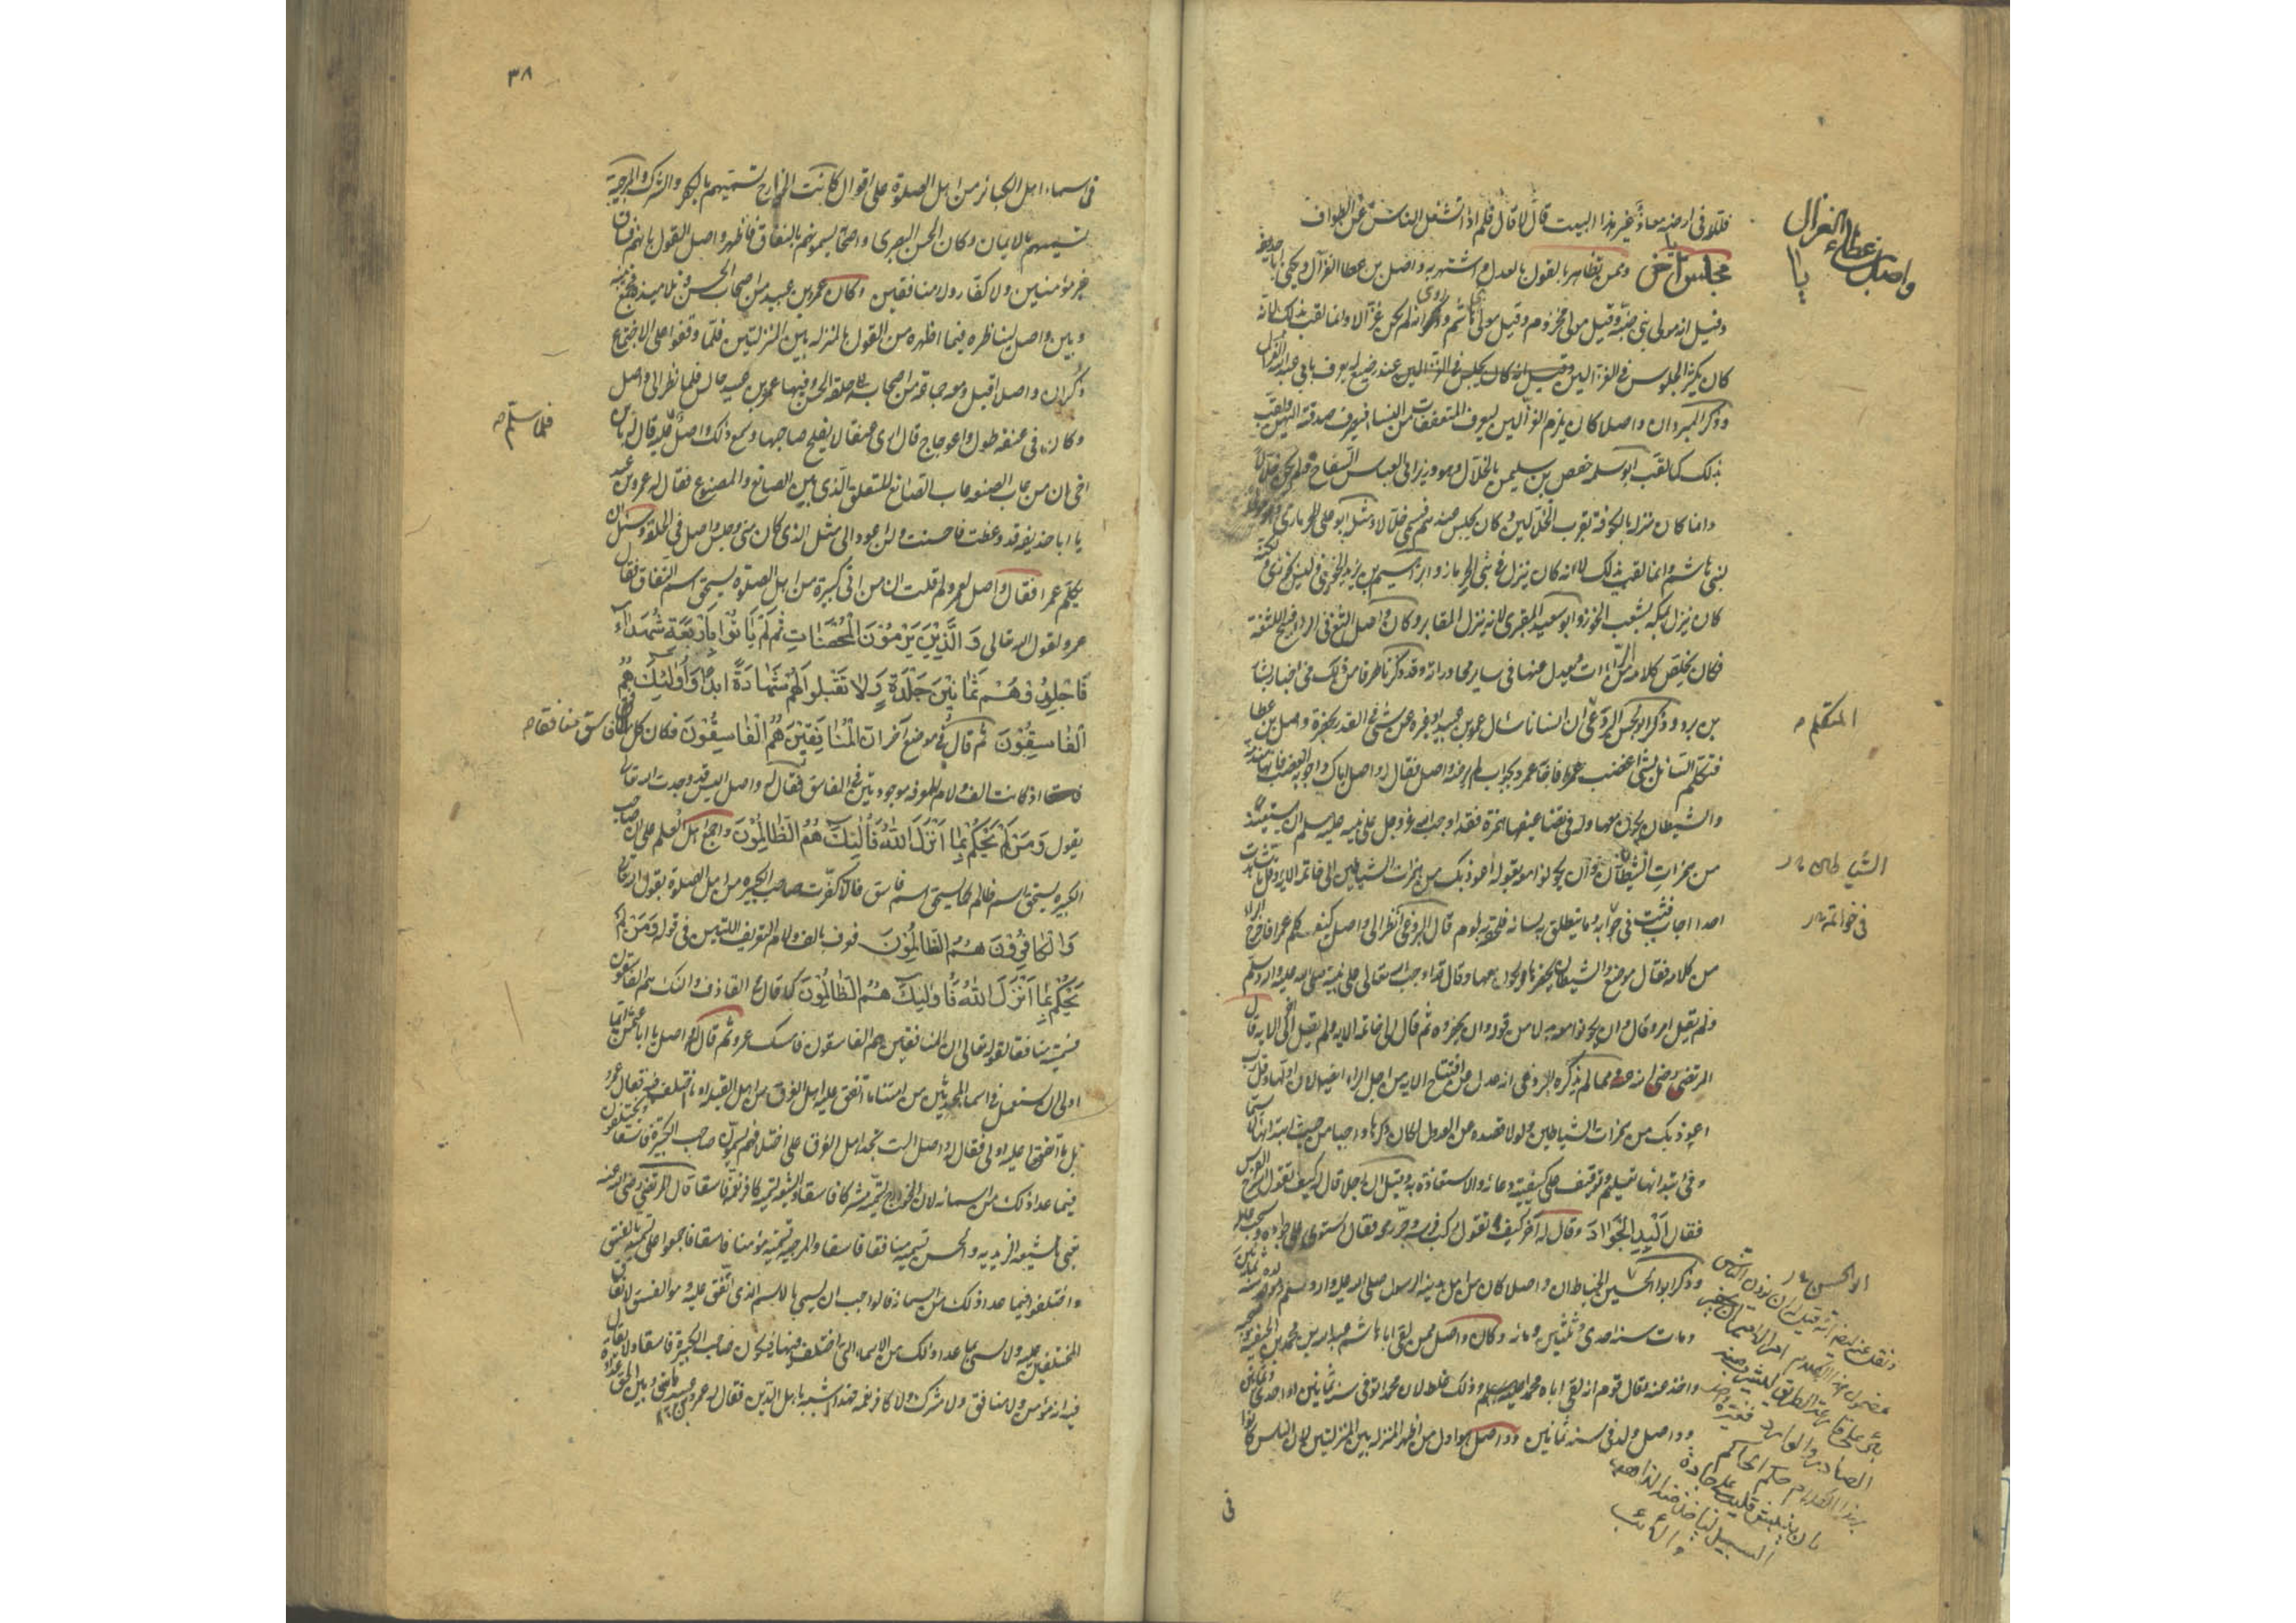 فتلقوه في ارضه معاذ غير هذا البيت قال لا قال فلم اذا تشغل الناس عن الطواف
مجلس آخر وممن تظاهر بالقول بالعدل واشتهر به واصل بن عطا الغزال ويكنى ابا حذيفة
وقيل انه مولى بني ضبة وقيل مولى بني مخزوم وقيل مولى بني هاشم وروى انه لم يكن غزالا وانما لقب بذلك لانه
كان يكثر الجلوس في الغزالين وقيل انه كان يجلس في الغزالين عند رضيع له يعرف بابي عبد الله الغزال
وذكر المبرد ان واصلا كان يلزم الغزالين ليعرف المتعففات من النسا فيصرف صدقته اليهن ولقب
بذلك كما لقب ابو سلمة حفص بن سليمن بالخلال وهو وزير ابي العباس السفاح ولم يكن خلالا
وانما كان منزله بالكوفة بقرب الخلالين وكان يجلس عندهم فسمي خلالا ومثله ابو علي الحرمازي وهو مولى
لبني هاشم وانما لقب بذلك لانه كان ينزل في بني الحرماز وابراهيم بن يزيد الخوزي وليس بخوزي ولكنه
كان ينزل بمكة بشعب الخوز وابو سعيد المقبري لانه ينزل المقابر وكان واصل الثغ في الراء قبيح اللثغة
فكان يخلص كلامه من الراءات ويعدل عنها في ساير محاوراته وقد ذكرنا طرفا من ذلك في اخبار بشار
بن برد وذكر ابو الحسن البرذعي ان انسانا سال عمرو بن عبيد او غيره عن شي في القدر بحضرة واصل بن عطا
فتكلم السائل بشي اغضب عمرا فاجابه عمرو بجواب لم يرضه واصل فقال له واصل اياك واجوبة الغضب فانها مندمة
والشيطان يكون معها وله في تضاعيفها همزة فقد اوجب الله عز وجل على نبيه عليه السلم ان يستعيذ
من همزات الشيطان وان يكونوا معه بقوله اعوذ بك من همزات الشياطين الى خاتمة الاية
من كلامه فقال موضع والشيطان يحضرها ويكون معها وقال قد اوجب الله تعالى على نبيه صلى الله عليه واله وسلم
ولم يقل امره وقال وان يكونوا معه بدلا من قوله وان يحضروه ثم قال الى خاتمة الاية ولم يقل اخر الاية قال
المرتضى رضي الله عنه ومما لم يذكره البرذعي انه عدل عن افتتاح الاية من اجل الراء ايضا لان اولها وقل رب
اعوذ بك من همزات الشياطين ولولا قصده عن العدول لكان ذكرها واجبا من حيث ابتدائها
وفي ابتدائها تعليم وتوقيف على كيفية دعائه والاستعاذة به وقيل ان رجلا قال له كيف تقول اسرج الفرس
فقال البد الجواد وقال له آخر كيف تقول ركب فرسه وجر رمحه فقال استوى على جواده وسحب عامله
وذكر ابو الحسين الخياط ان واصلا كان من اهل مدينة الرسول صلى الله عليه واله وسلم ومولده سنة ثمانين
ومات سنة احدى وثلثين ومائة وكان واصل ممن لقي ابا هاشم عبد الله بن محمد بن الحنفية وصحبه
واخذ عنه وقال قوم انه لقي اباه محمدا وذلك غلط لان محمدا توفي سنة ثمانين او احدى وثمانين
وواصل ولد في سنة ثمانين وواصل هو اول من اظهر المنزلة بين المنزلتين لان الناس كانوا
في
واصل بن عطاء الغزال
المتكلم
الشياطين
في خواتمه
ابو الحسن
٣٨
في اسماء اهل الكبائر من اهل الصلوة على اقوال كانت الخوارج تسميهم بالكفر والشرك والمرجية
تسميهم بالايمان وكان الحسن البصري واصحابه يسمونهم بالنفاق فاظهر واصل القول بانهم فساق
غير مؤمنين ولا كفار ولا منافقين وكان عمرو بن عبيد من اصحاب الحسن وتلاميذه فجمع بينه
وبين واصل ليناظره فيما اظهره من القول بالمنزلة بين المنزلتين فلما وقفوا على الاجتماع
ذكر ان واصلا اقبل ومعه جماعة من اصحابه الى حلقة الحسن وفيها عمرو بن عبيد جالس فلما نظر الى واصل
وكان في عنقه طول واعوجاج قال ارى عنقا لا يفلح صاحبها وسمع ذلك واصل فلما سلم قال له يابن
اخي ان من عاب الصنعة عاب الصانع للتعلق الذي بين الصانع والمصنوع فقال له عمرو بن عبيد
يا ابا حذيفة قد وعظت فاحسنت ولن اعود الى مثل الذي كان مني وجلس واصل في الحلقة وسئل ان
يكلم عمرا فقال واصل لعمرو لم قلت ان من اتى كبيرة من اهل الصلوة يستحق اسم النفاق فقال
عمرو لقول الله تعالى وَالَّذِينَ يَرْمُونَ الْمُحْصَنَاتِ ثُمَّ لَمْ يَأْتُوا بِأَرْبَعَةِ شُهَدَاءَ
فَاجْلِدُوهُمْ ثَمَانِينَ جَلْدَةً وَلَا تَقْبَلُوا لَهُمْ شَهَادَةً أَبَدًا وَأُولَئِكَ هُمُ
الْفَاسِقُونَ ثم قال في موضع آخر ان الْمُنَافِقِينَ هُمُ الْفَاسِقُونَ فكان كل فاسق منافقا
اذ كانت الف ولام المعرفة موجودتين في الفاسق فقال له واصل اليس قد وجدت الله تعالى
يقول وَمَنْ لَمْ يَحْكُمْ بِمَا أَنْزَلَ اللَّهُ فَأُولَئِكَ هُمُ الظَّالِمُونَ واجمع اهل العلم على ان صاحب
الكبيرة يستحق اسم ظالم كما يستحق اسم فاسق فالا كفرت صاحب الكبيرة من اهل الصلوة بقول الله تعالى
وَالْكَافِرُونَ هُمُ الظَّالِمُونَ فعرف بالف ولام التعريف اللتين في قوله وَمَنْ لَمْ
يَحْكُمْ بِمَا أَنْزَلَ اللَّهُ فَأُولَئِكَ هُمُ الظَّالِمُونَ كما قال في القاذف واولئك هم الفاسقون
فسميته منافقا لقوله تعالى ان المنافقين هم الفاسقون فامسك عمرو ثم قال له واصل يا ابا عثمن ايما
اولى ان يستعمل في اسماء المحدثين من امتنا ما اتفق عليه اهل الفرق من اهل القبلة او ما اختلفت فيه فقال عمرو
بل ما اتفقوا عليه اولى فقال له واصل الست تجد اهل الفرق على اختلافهم يسمون صاحب الكبيرة فاسقا ويختلفون
فيما عدا ذلك من اسمائه لان الخوارج تسميه مشركا فاسقا والشيعة تسميه كافر نعمة فاسقا قال المرتضى رضي الله عنه
يعني بالشيعة الزيدية والحسن يسميه منافقا فاسقا والمرجية تسميه مؤمنا فاسقا فاجمعوا على تسميته بالفسق
واختلفوا فيما عدا ذلك من اسمائه فالواجب ان يسمى بالاسم الذي اتفق عليه وهو الفسق لاتفاق
المختلفين عليه ولا يسمى بما عدا ذلك من الاسماء التي اختلف فيها فيكون صاحب الكبيرة فاسقا ولا يقال
فيه انه مؤمن ولا منافق ولا مشرك ولا كافر نعمة فهذا اشبه باهل الدين فقال له عمرو ما بيني وبين الحق عداوة
فلما سلم
منافقا